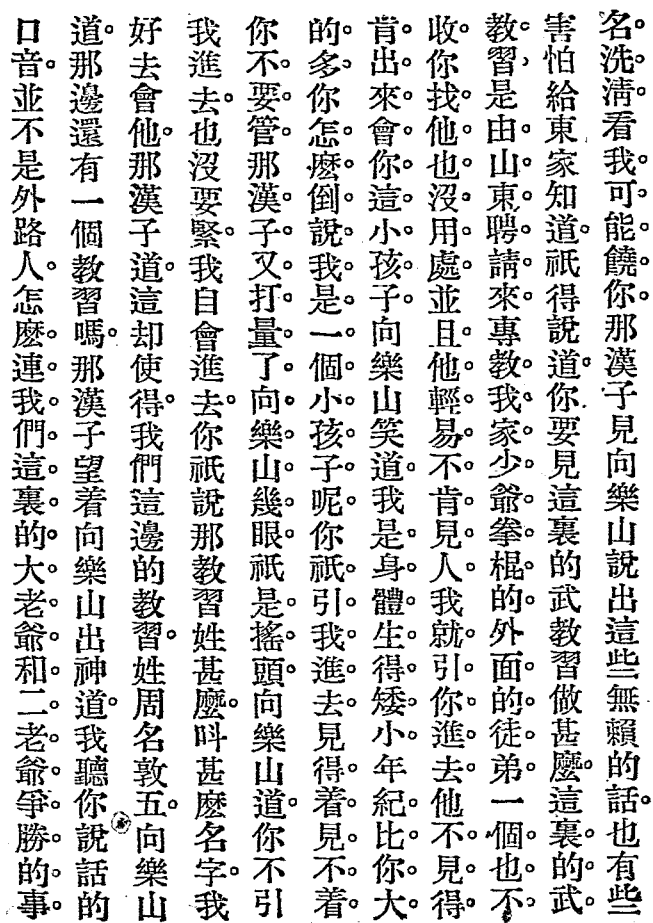 名洗清看我可能饒你那漢子見向樂山說出這些無賴的話。也有些
害怕給東家知道。祇得說道。你要見這裏的武教習做甚麽。這裏的武
教習，是由山東聘請來專教我家少爺拳棍的。外面的徒弟一個也不
收。你找他也沒用處。並且他輕易不肯見人。我就引你進去。他不見得
肯出來會你這小孩子。向樂山笑道。我是身體生得矮小。年紀比你大
的多。你怎麽倒說我是一個小孩子呢。你祇引我進去。見得着見不着。
你不要管。那漢子又打量了向樂山幾眼。祇是搖頭。向樂山道。你不引
我進去。也沒要緊。我自會進去。你祇說那教習姓甚麽。叫甚麽名字。我
好去會他。那漢子道。這却使得。我們這邊的教習。姓周名敦五。向樂山
道。那邊還有一個教習嗎。那漢子望着向樂山出神道。我聽你說話的
口音。並不是外路人。怎麽連我們這裏的大老爺和二老爺爭勝的事。